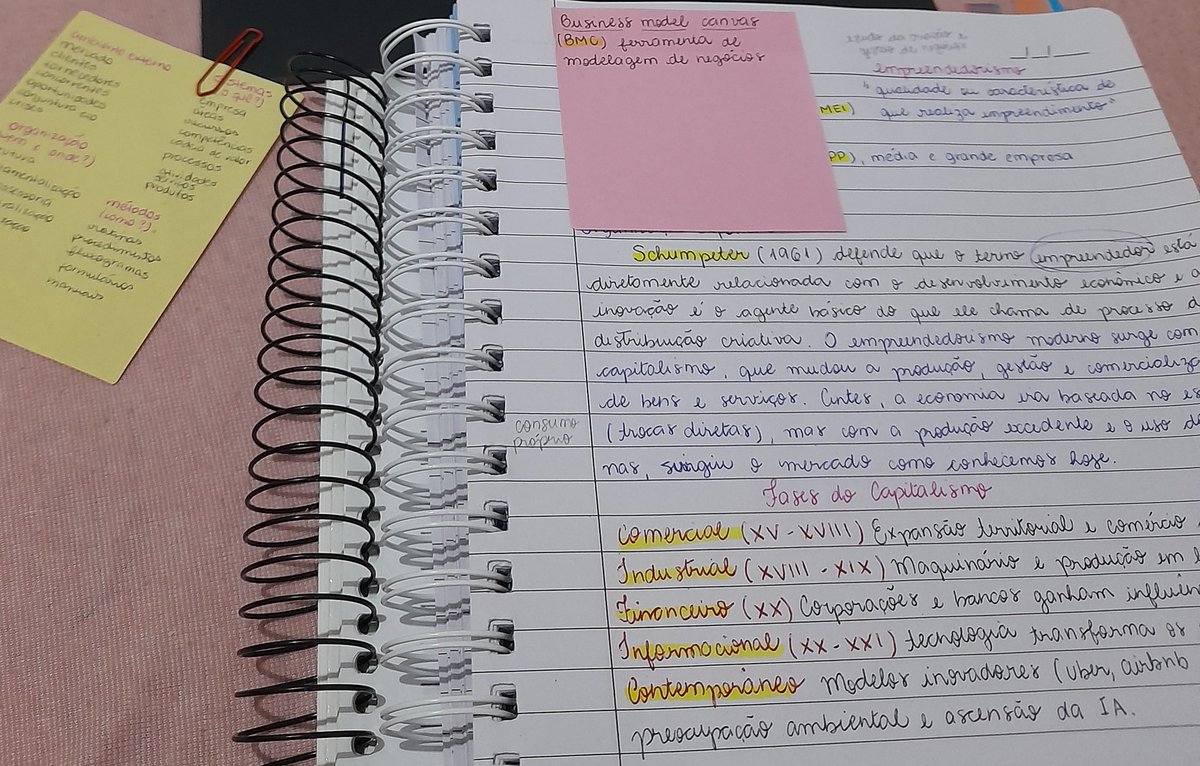 ambiente externo
mercado
clientes
fornecedores
concorrentes
oportunidades
crises
organização
(quem e onde?)
sistemas
(o quê?)
empresa
áreas
recursos
competências
cadeia de valor
processos
atividades
produtos
métodos
(como?)
normas
procedimentos
fluxogramas
formulários
manuais
Business model canvas
(BMC) ferramenta de
modelagem de negócios
estudo da criação e
gestão de negócios
__/__/__
empreendedorismo
"qualidade ou característica de
MEI) que realiza empreendimento"
PP), média e grande empresa
Schumpeter (1961) defende que o termo empreendedor está
diretamente relacionada com o desenvolvimento econômico e
inovação é o agente básico do que ele chama de processo
distribuição criativa. O empreendedorismo moderno surge com
capitalismo, que mudou a produção, gestão e comercializa
de bens e serviços. Antes, a economia era baseada no es
consumo
próprio
(trocas diretas), mas com a produção excedente e o uso de
nas, surgiu o mercado como conhecemos hoje.
Fases do Capitalismo
Comercial (XV - XVIII) Expansão territorial e comércio
Industrial (XVIII - XIX) Maquinário e produção em
Financeiro (XX) Corporações e bancos ganham influên
Informacional (XX - XXI) tecnologia transforma os
Contemporâneo Modelos inovadores (uber, airbnb
preocupação ambiental e ascensão da IA.